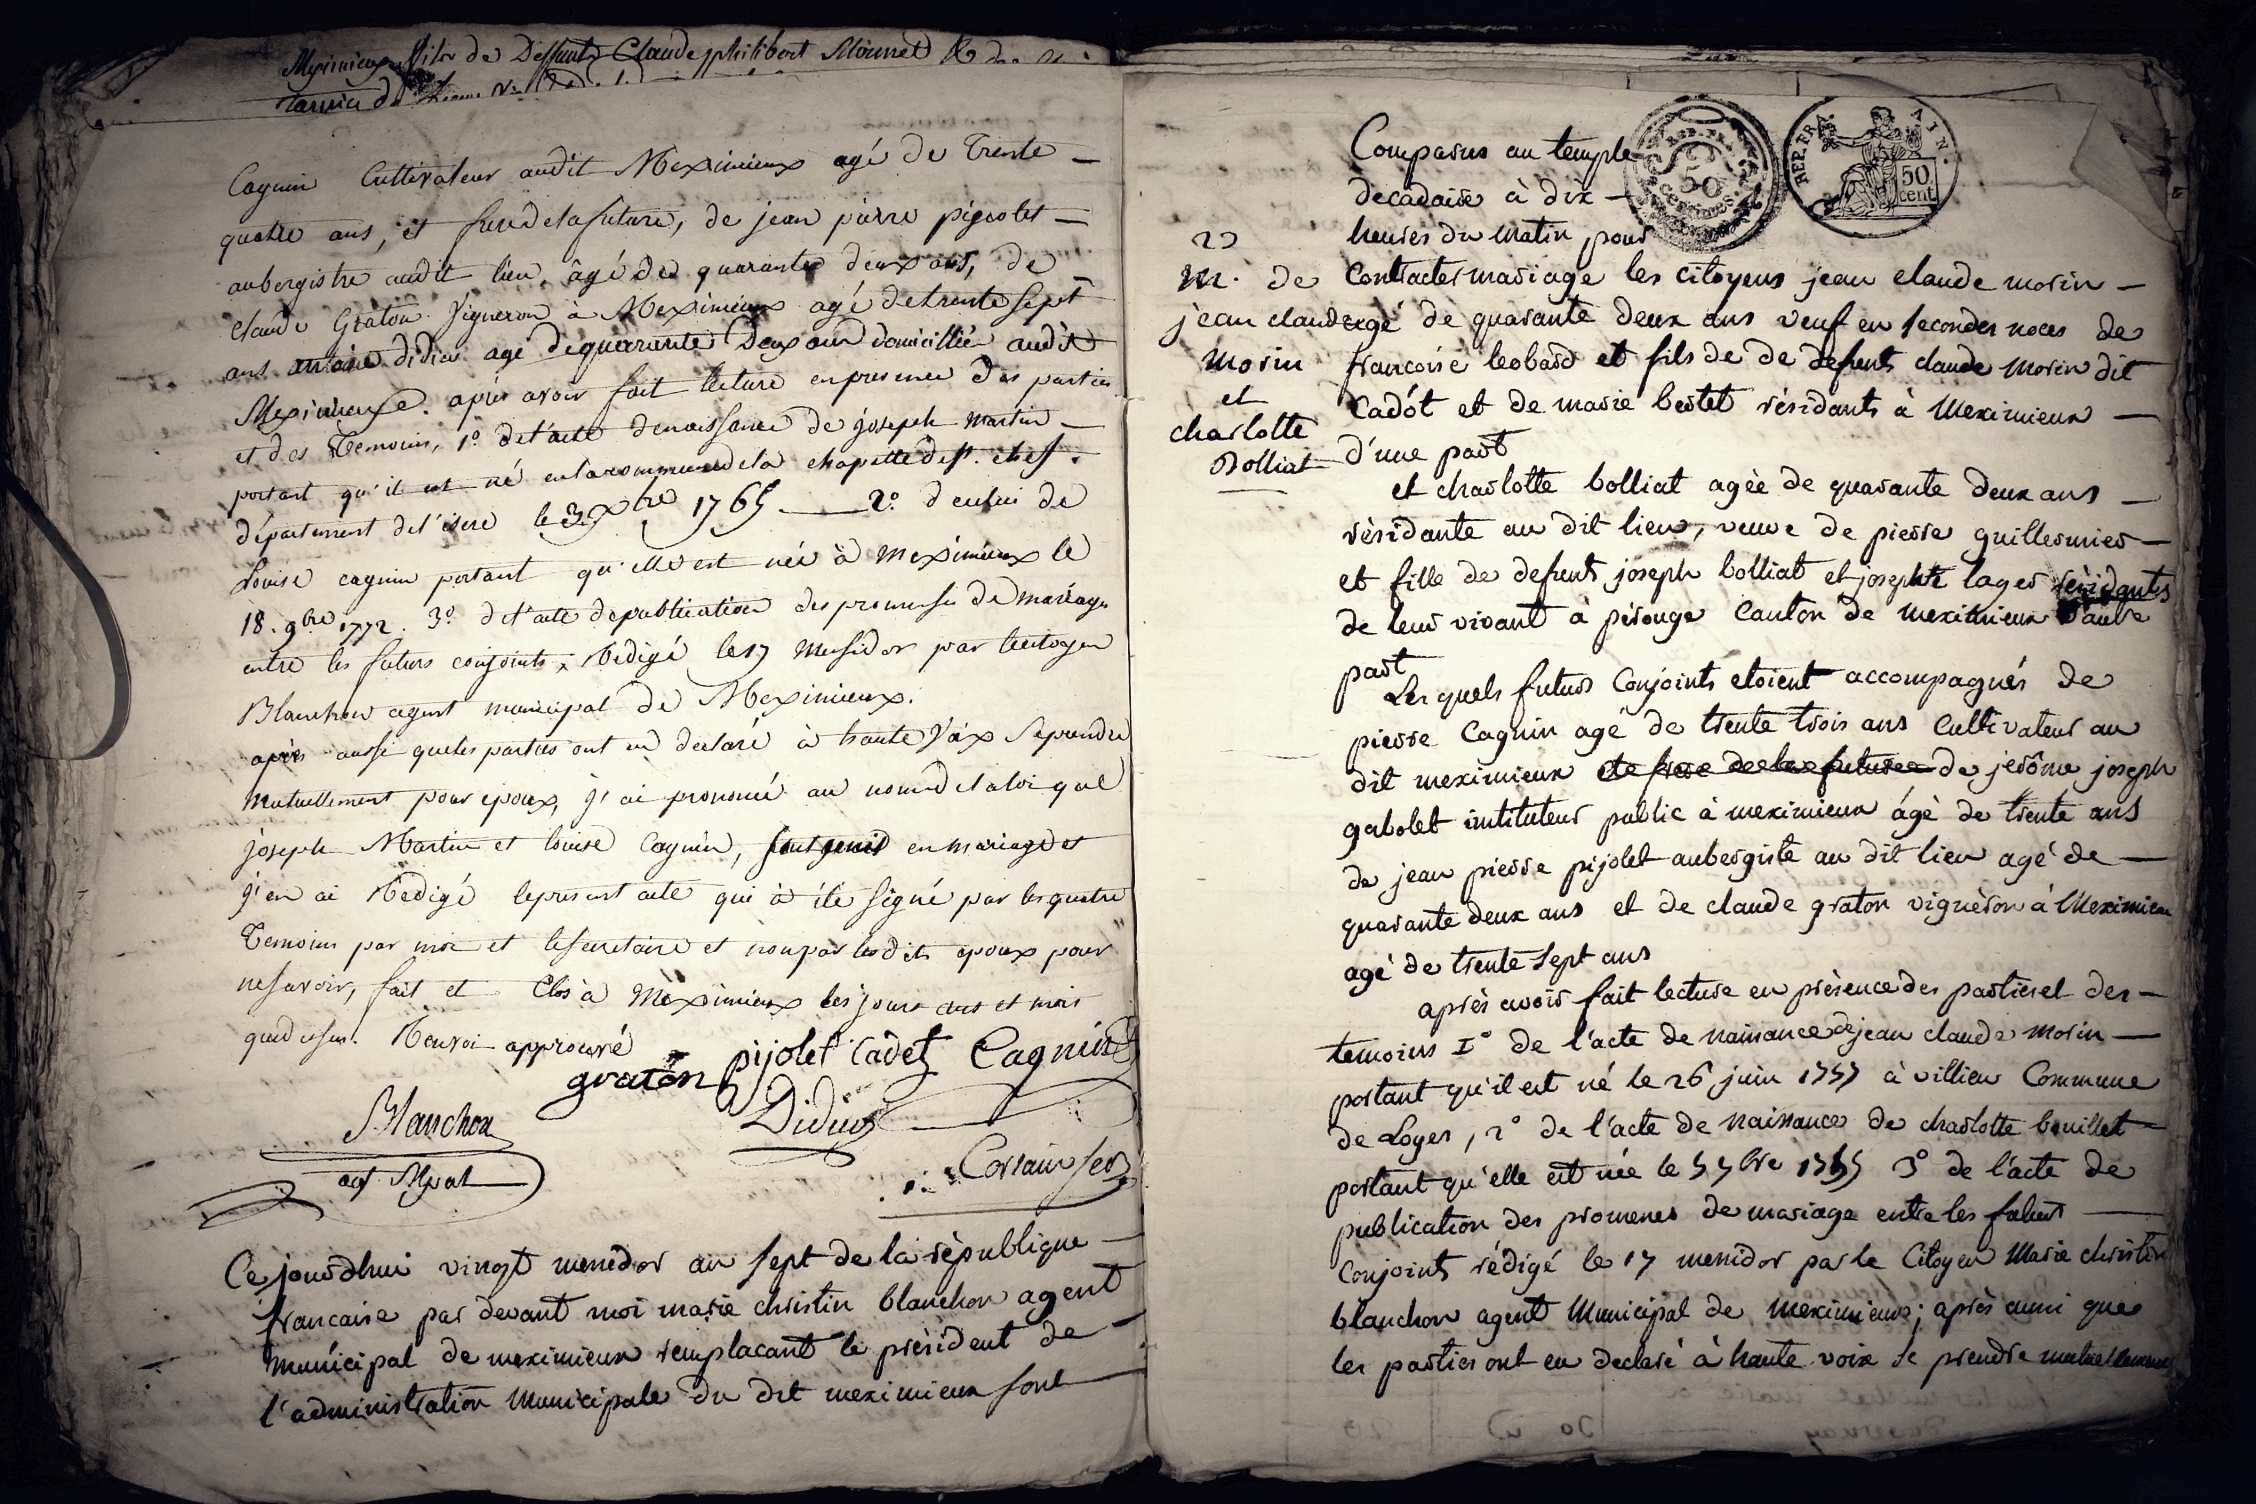 Meximieux fils de Deffunt Claude philibert Mornet & de
Cagnin Cultivateur audit Meximieux agé de Trente —
quatre ans, et frere de la future, de jean pierre pijeolet —
aubergiste audit lieu, âgé de quarante deux ans, de
Claude Graton Vigneron à Meximieux agé de trente sept
ans antoine didier agé de quarante Deux ans domicillié audit
Meximieux. après avoir fait lecture en presence des parties
et des Temoins, 1º de l'acte de naissance de joseph Martin —
portant qu'il est né en la commune de la chapelle de st. chef.
département de l'isere le 3 Xbre 1765 — 2º. d'enlui de
Louise cagnin portant qu'elle est née à Meximieux le
18. 9bre 1772. 3º de l'acte de publication des promesses de mariage
entre les futurs conjoints, Redigé le 17 Messidor par le citoyen
Blanchon agent municipal de Meximieux.
après aussi que les parties ont eu declaré à haute Voix se prendre
mutuellement pour epoux, j'ai prononcé au nom de la loi que
joseph Martin et Louise Cagnin, sont unis en mariage et
j'en ai Redigé le present acte qui à été signé par les quatre
Temoins par moi et le secretaire et non par les dits epoux pour
ne savoir, fait et Clos à Meximieux les jours ans et mois
que dessus. Renvoi approuvé
graton pijolet Cadet Cagnin
Blanchon Didier
agt. Mpal Corsain ser
Ce jourdhui vingt messidor an sept de la rèpublique —
francaise par devant moi marie christin blanchon agent
municipal de meximieux remplacant le prèsident de —
l'administration municipale du dit meximieux sont
Comparus au temple
decadaire à dix —
heures du matin, pour
REP. FRA
50
CENTIMES
REP. FRA. AIN.
50
cent
22
M. de
jean claude
morin
et
charlotte
Bolliat
Contracter mariage les citoyens jean claude morin —
agé de quarante deux ans veuf en secondes noces de
francoise leobard et fils de de defunts claude morin dit
Cadót et de marie bertet rèsidants à Meximieux —
d'une part
et charlotte bolliat agèe de quarante deux ans —
rèsidante au dit lieu, veuve de pierre guillermier —
et fille de defunts joseph bolliat et josephte lager rèsidants
de leur vivant à pèrouge Canton de meximieux d'autre
part
Les quels futurs Conjoints etoient accompagnés de
pierre Cagnin agé de trente trois ans Cultivateur au
dit meximieux et frere de la future de jerôme joseph
gabolet instituteur public à meximieux ágè de trente ans
de jean pierre pijolet aubergiste au dit lieu agé de —
quarante deux ans et de claude graton vignèron à Meximieux
agé de trente sept ans
après avoir fait lecture en prèsence des parties et des —
temoins 1º de l'acte de naissance de jean claude morin —
portant qu'il est né le 26 juin 1757 à villieu Commune
de Loyes, 2º de l'acte de naissance de charlotte bouillet —
portant qu'elle est née le 5 7bre 1755 3º de l'acte de
publication des promesses de mariage entre les futurs —
Conjoints rédigé le 17 messidor par le Citoyen Marie christin
blanchon agent Municipal de meximieux; après aussi que
les parties ont eu declaré à haute voix se prendre mutuellement